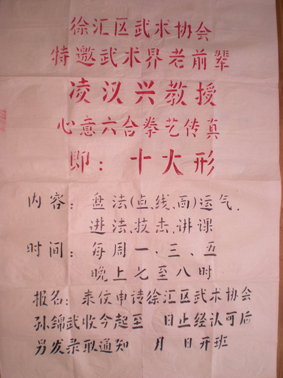 徐汇区武术协会
特邀武术界老前辈
凌汉兴教授
心意六合拳艺传真
即：十大形
内容：盘法(点、线、面)运气、
进法、技击、讲课
时间：每周一、三、五
晚上七至八时
报名：来徐申请徐汇区武术协会
孙锦武收今起至 日止经认可后
另发录取通知 月 日开班